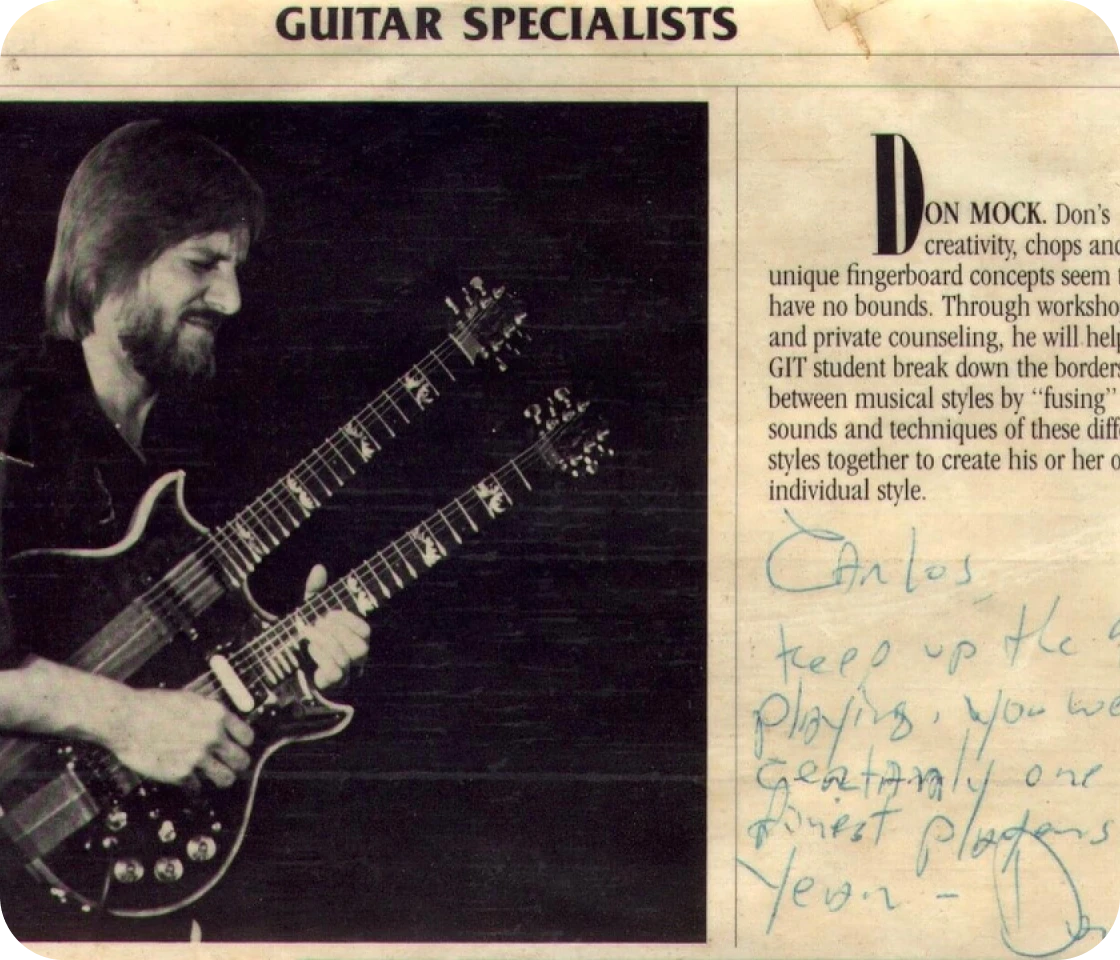 GUITAR SPECIALISTS
DON MOCK. Don's
creativity, chops and
unique fingerboard concepts seem
have no bounds. Through worksho
and private counseling, he will help
GIT student break down the borders
between musical styles by “fusing”
sounds and techniques of these diff
styles together to create his or her o
individual style.
Carlos,
Keep up the
playing, you we
certainly one
finest players
Year - Don